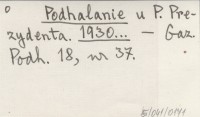 Podhalanie u P. Pre-
zydenta. 1930... — Gaz.
Podh. 18, nr 37.
5/041/0141